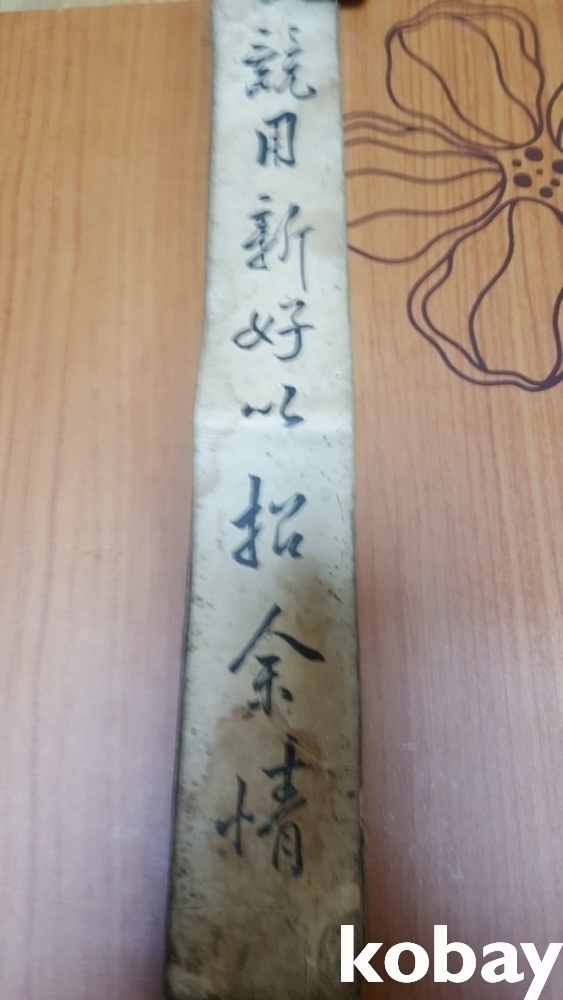 競用新好以招余情
kobay